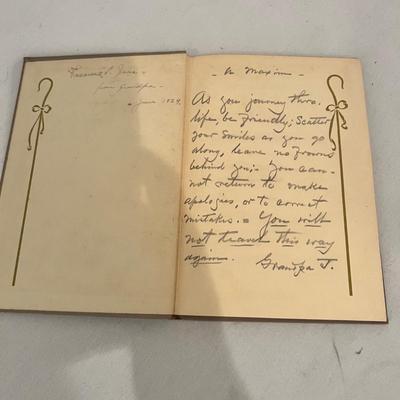 from Grandpa -
June 1924
- A Maxim -
As you journey thro.
life, be friendly; Scatter
your smiles as you go
along, leave no frowns
behind you; - You can-
not return to make
apologies, or to correct
mistakes. = You will
not travel this way
again. Grandpa J.